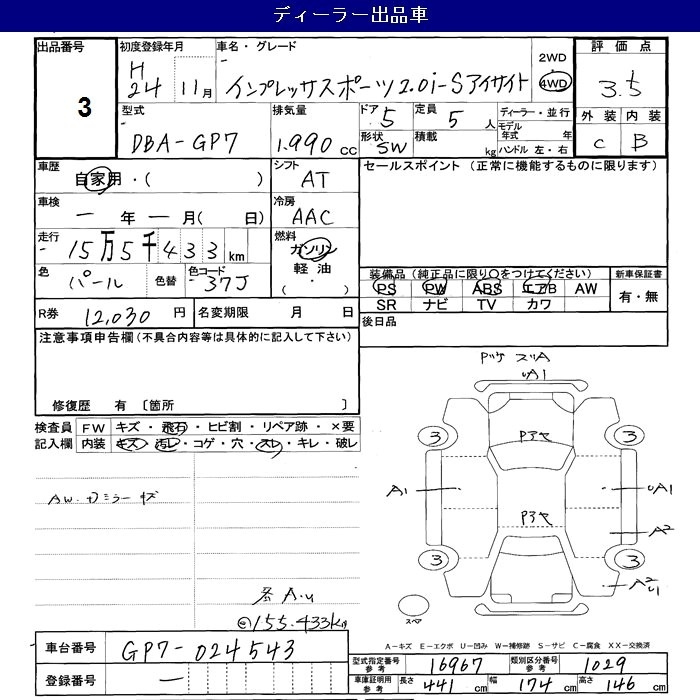 ディーラー出品車
出品番号 3
初度登録年月 H24 11月
車名・グレード インプレッサスポーツ2.0i-Sアイサイト
2WD
4WD
評価点 3.5
外装 内装
C B
型式 DBA-GP7
排気量 1,990 cc
ドア 5
定員 5 人
形状 SW
積載 kg
ディーラー・並行
モデル年式 年
ハンドル 左・右
車歴 自家用・( )
シフト AT
車検 ー 年 ー 月( 日)
冷房 AAC
走行 15万5千433km
燃料 ガソリン
軽油
( ・ )
色 パール 色替
色コード 37J
セールスポイント (正常に機能するものに限ります)
装備品(純正品に限り○をつけてください)
PS PW ABS エアB AW
SR ナビ TV カワ
新車保証書
有・無
後日品
R券 12,030 円
名変期限 月 日
注意事項申告欄(不具合内容等は具体的に記入して下さい)
修復歴 有 〔箇所 〕
検査員記入欄
FW キズ・飛石・ヒビ割・リペア跡・×要
内装 キズ・汚レ・コゲ・穴・スレ・キレ・破レ
AW・ドミラーキズ
A.U
155.433km
UA1
3 3
Pアセ
A1 UA1
Pアセ
A2
3 3
A2
U1
スペア
A-キズ E-エクボ U-凹み W-補修跡 S-サビ C-腐食 XX-交換済
車台番号 GP7-024543
登録番号 ー
型式指定番号 参考 16967
類別区分番号 参考 1029
車庫証明用 参考 長さ 441 cm 幅 174 cm 高さ 146 cm